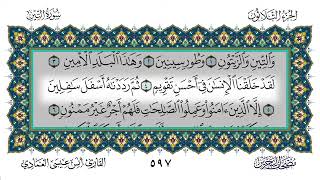 الجزء الثلاثون
سورة التين
وَالتِّينِ وَالزَّيْتُونِ ١ وَطُورِ سِينِينَ ٢ وَهَٰذَا الْبَلَدِ الْأَمِينِ ٣
لَقَدْ خَلَقْنَا الْإِنسَانَ فِي أَحْسَنِ تَقْوِيمٍ ٤ ثُمَّ رَدَدْنَاهُ أَسْفَلَ سَافِلِينَ ٥
إِلَّا الَّذِينَ آمَنُوا وَعَمِلُوا الصَّالِحَاتِ فَلَهُمْ أَجْرٌ غَيْرُ مَمْنُونٍ ٦
٥٩٧